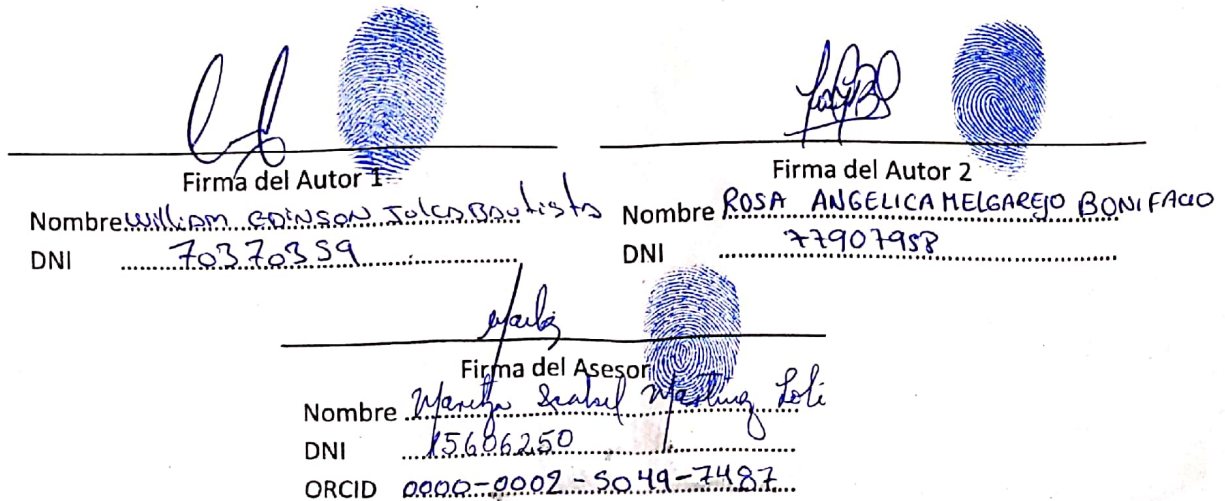 Firma del Autor 1
Nombre William EDINSON Julca Bautista
DNI 70370359
Firma del Autor 2
Nombre ROSA ANGELICA MELGAREJO BONIFACIO
DNI 77907958
Firma del Asesor
Nombre Maritza Isabel Martinez Loli
DNI 15606250
ORCID 0000-0002-5049-7487